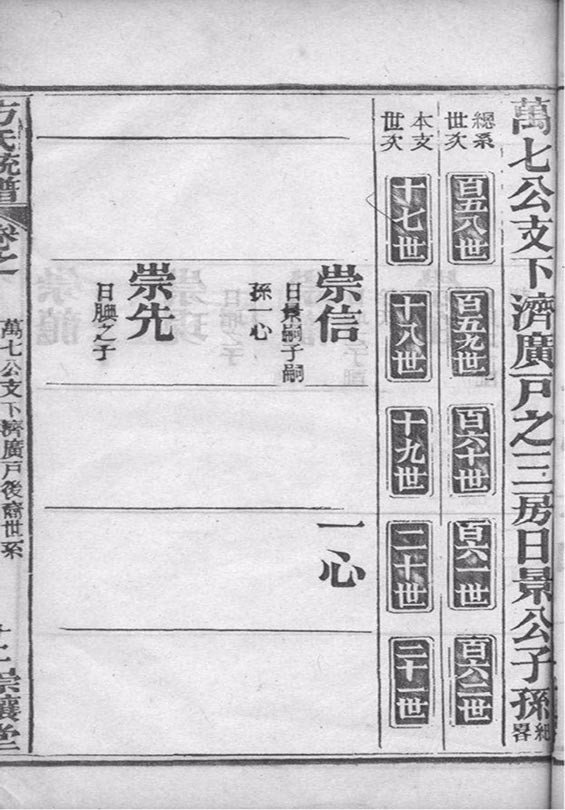 萬七公支下濟廣戶之三房日景公子孫紀畧
總系
世次
百五八世
百五九世
百六十世
百六一世
百六二世
本支
世次
十七世
十八世
十九世
二十世
二十一世
崇信
日景嗣子嗣
孫一心
一心
崇先
日之子
方氏統譜
卷之
萬七公支下濟廣戶後裔世系
崇讓堂